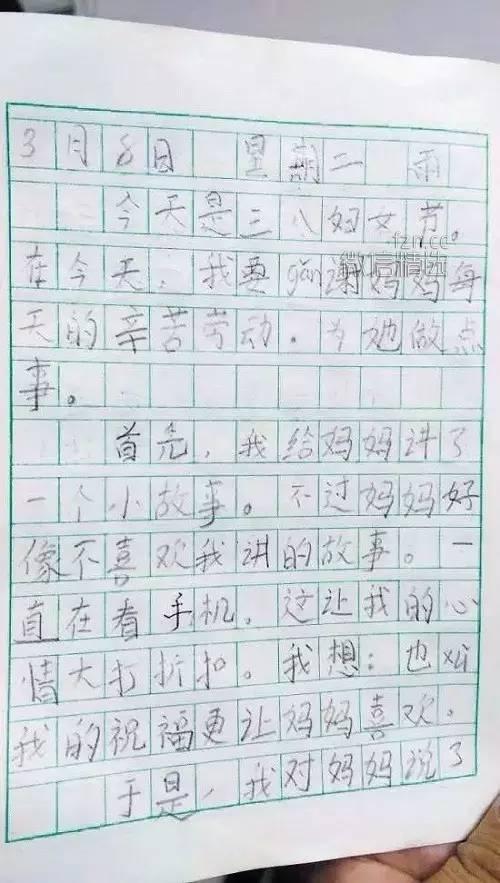 3月8日 星期二 雨
今天是三八妇女节。
在今天，我要gǎn谢妈妈每
天的辛苦劳动。为她做点
事。
首先，我给妈妈讲了
一个小故事。不过妈妈好
像不喜欢我讲的故事。一
直在看手机。这让我的心
情大打折扣。我想：也xǔ
我的祝福更让妈妈喜欢。
于是，我对妈妈说了
fzn.cc
微信精选